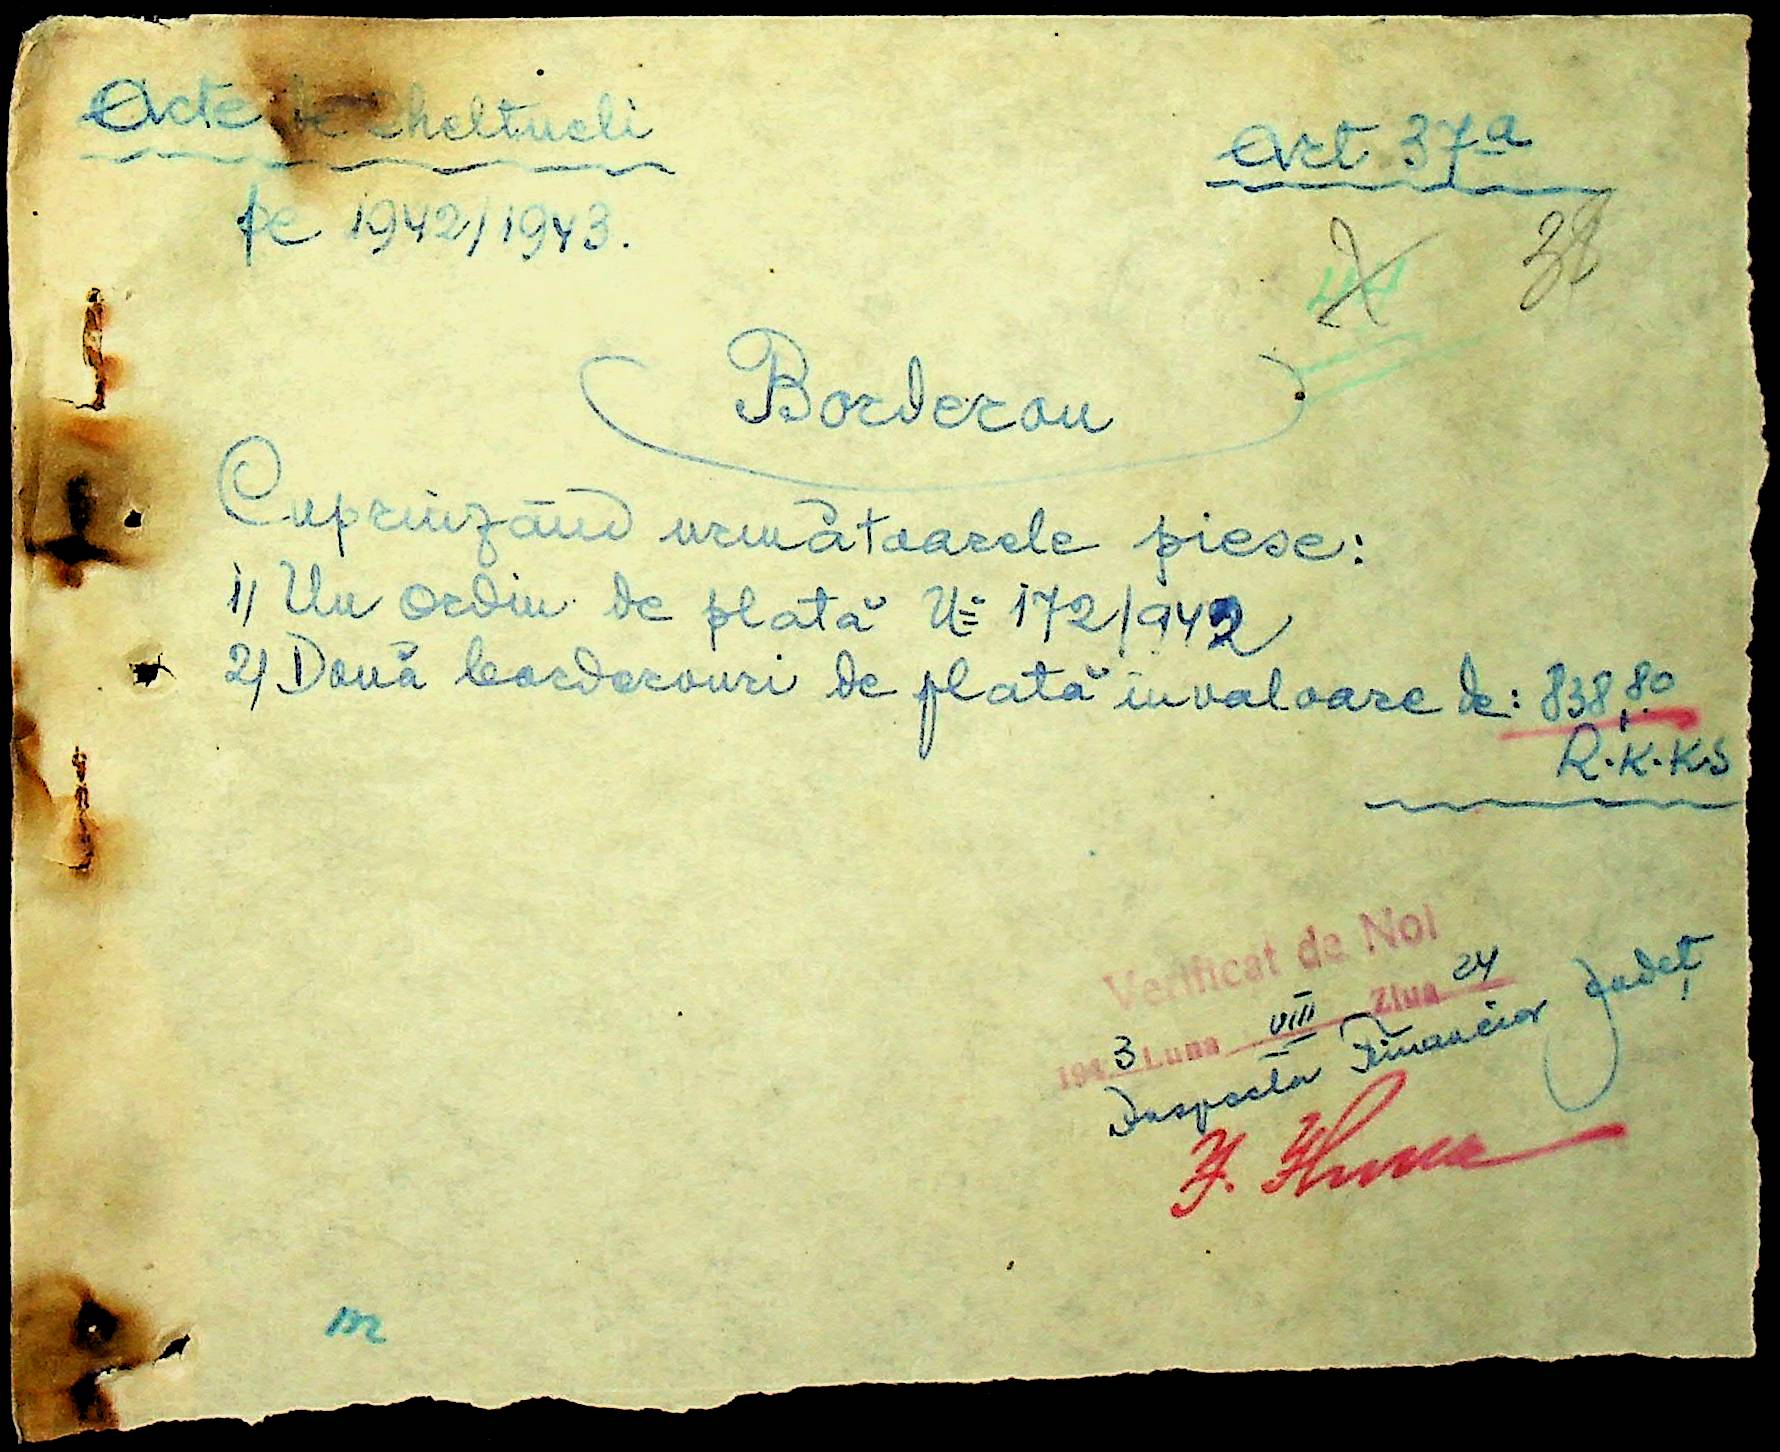 Acte de Cheltueli
Art 37a
pe 1942/1943.
38
Borderou
Cuprinzând următoarele piese:
1) Un ordin de plată No 172/942
2) Două borderouri de plată in valoare de: 838,80
R.K.K.S
Verificat de Noi
1943 Luna VIII Ziua 24
Inspector Financiar Județ